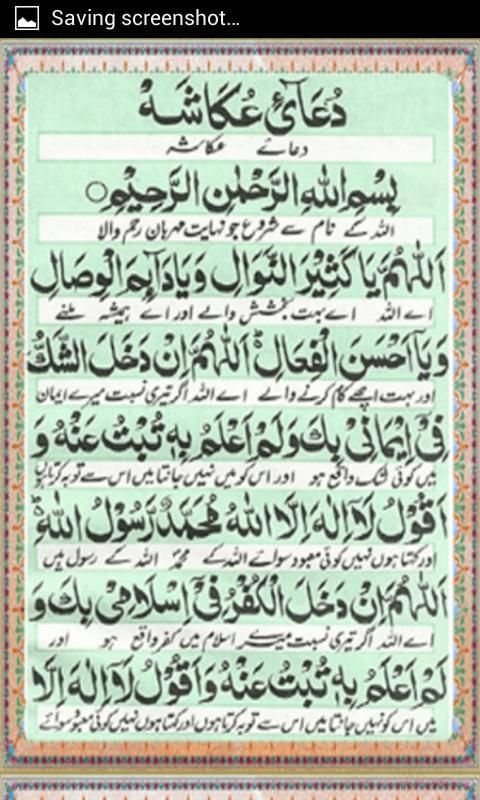 Saving screenshot...
دُعَائِ عُكَاشَهْ
دعائے عکاشہ
بِسْمِ اللهِ الرَّحْمٰنِ الرَّحِيْمِ○
اللہ کے نام سے شروع جو نہایت مہربان رحم والا
اَللّٰهُمَّ يَا كَثِيْرَ النَّوَالِ وَيَا دَآئِمَ الْوِصَالِ
اے اللہ اے بہت بخشش والے اور اے ہمیشہ ملنے
وَيَآ اَحْسَنَ الْفِعَالِ ؕ اَللّٰهُمَّ اِنْ دَخَلَ الشَّكُّ
اور بہت اچھے کام کرنے والے اے اللہ اگر تیری نسبت میرے ایمان
فِيْٓ اِيْمَانِيْ بِكَ وَلَمْ اَعْلَمْ بِهٖ تُبْتُ عَنْهُ وَ
میں کوئی شک واقع ہو اور اس کو میں نہیں جانتا میں اس سے توبہ کرتا ہوں
اَقُوْلُ لَآ اِلٰهَ اِلَّا اللهُ مُحَمَّدٌ رَّسُوْلُ اللهِ ؕ
اور کہتا ہوں نہیں کوئی معبود سوائے اللہ کے محمدؐ اللہ کے رسول ہیں
اَللّٰهُمَّ اِنْ دَخَلَ الْكُفْرُ فِيْٓ اِسْلَامِيْ بِكَ وَ
اے اللہ اگر تیری نسبت میرے اسلام میں کفر واقع ہو اور
لَمْ اَعْلَمْ بِهٖ تُبْتُ عَنْهُ وَاَقُوْلُ لَآ اِلٰهَ اِلَّا
میں اس کو نہیں جانتا میں اس سے توبہ کرتا ہوں اور کہتا ہوں نہیں کوئی معبود سوائے